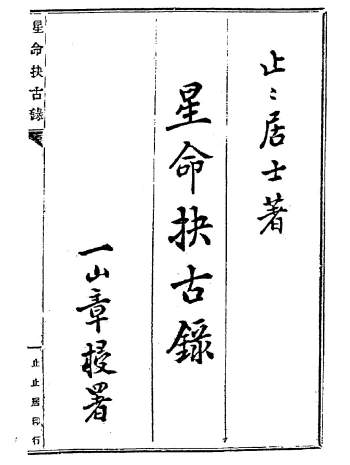 止〻居士著
星命抉古錄
一山章梫署
星命抉古錄
一 止止居印行